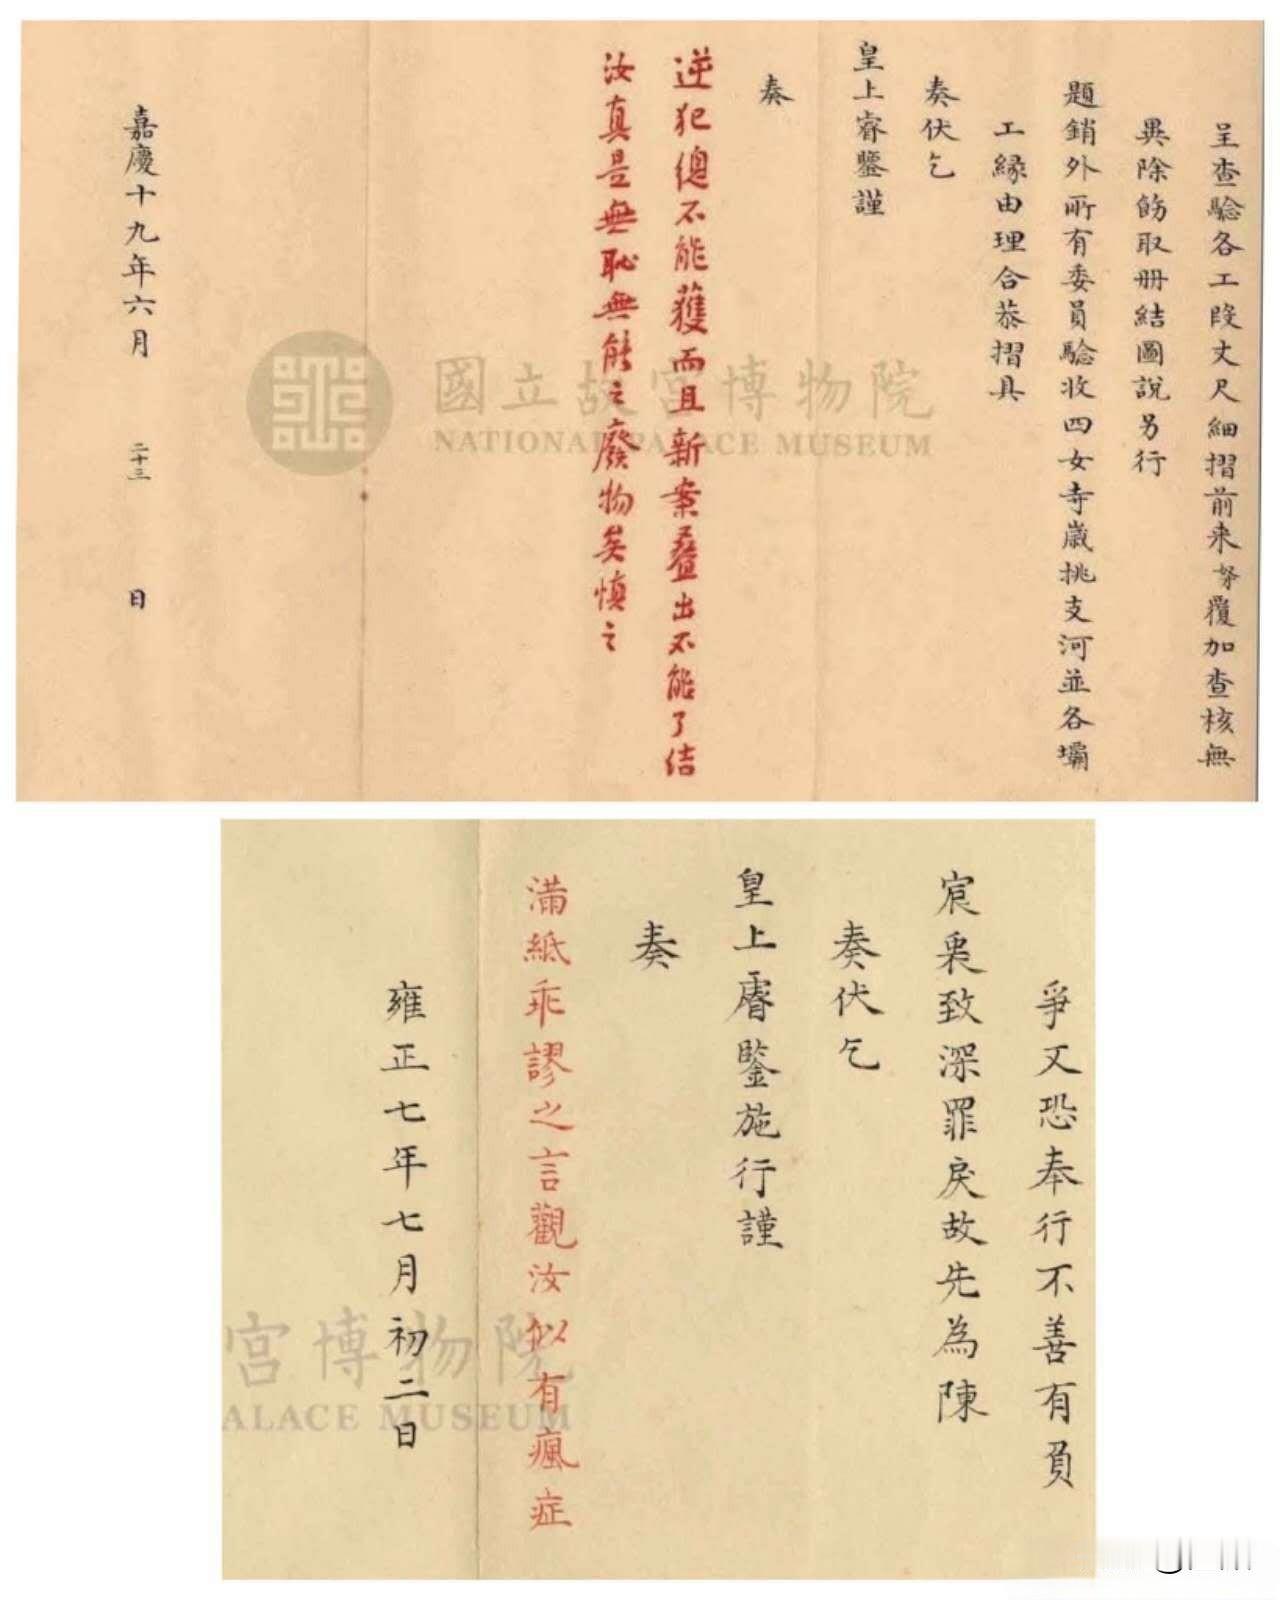 呈查驗各工段丈尺細摺前來努覆加查核無
異除飭取冊結圖說另行
題銷外所有委員驗收四女寺歲挑支河並各壩
工緣由理合恭摺具
奏伏乞
皇上睿鑒謹
奏
逆犯總不能獲而且新案疊出不能了結
汝真是無恥無能之廢物矣慎之
嘉慶十九年六月 二十三 日
國立故宮博物院
NATIONAL PALACE MUSEUM
爭又恐奉行不善有負
宸衷致深罪戾故先為陳
奏伏乞
皇上睿鑒施行謹
奏
滿紙乖謬之言觀汝似有瘋症
雍正七年七月初二日
宮博物院
ALACE MUSEUM